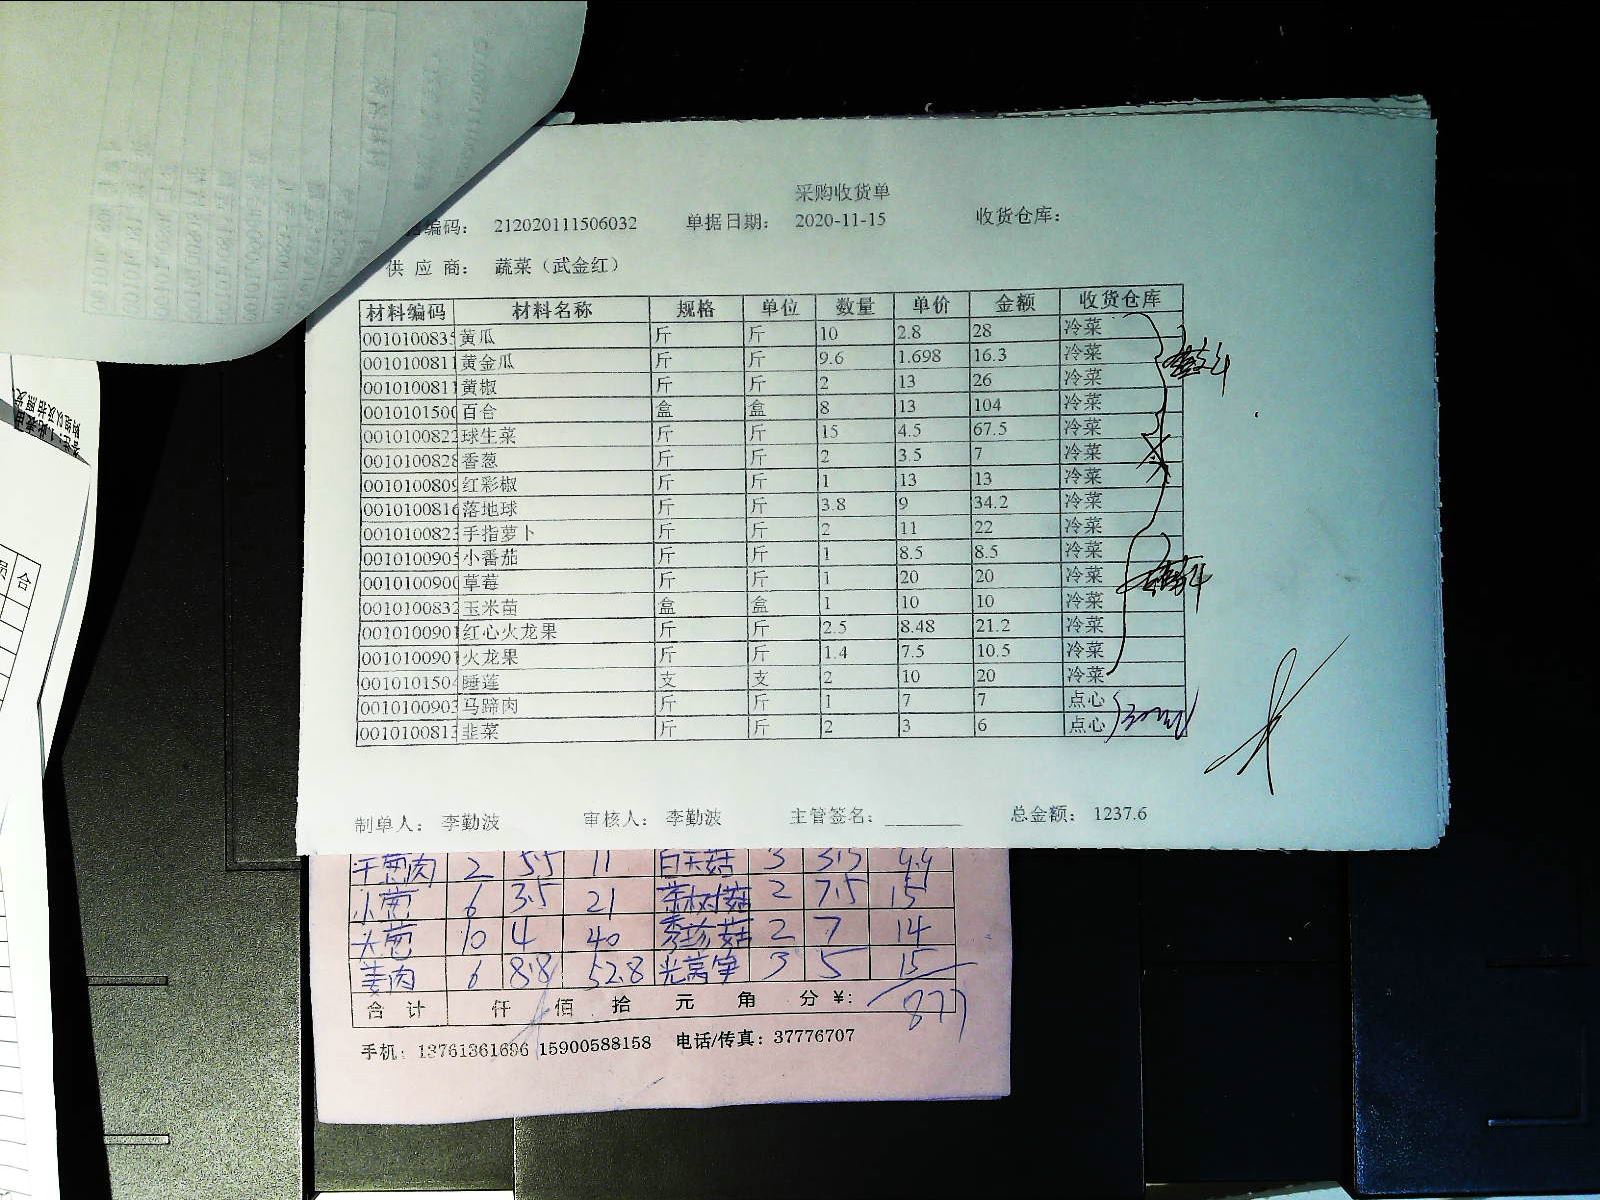 采购收货单
编码： 212020111506032 单据日期： 2020-11-15 收货仓库：
供 应 商： 蔬菜（武金红）
材料编码 材料名称 规格 单位 数量 单价 金额 收货仓库
001010083 黄瓜 斤 斤 10 2.8 28 冷菜
001010081 黄金瓜 斤 斤 9.6 1.698 16.3 冷菜
001010081 黄椒 斤 斤 2 13 26 冷菜
001010150 百合 盒 盒 8 13 104 冷菜
001010082 球生菜 斤 斤 15 4.5 67.5 冷菜
001010082 香葱 斤 斤 2 3.5 7 冷菜
001010080 红彩椒 斤 斤 1 13 13 冷菜
001010081 落地球 斤 斤 3.8 9 34.2 冷菜
001010082 手指萝卜 斤 斤 2 11 22 冷菜
001010090 小番茄 斤 斤 1 8.5 8.5 冷菜
001010090 草莓 斤 斤 1 20 20 冷菜
001010083 玉米苗 盒 盒 1 10 10 冷菜
001010090 红心火龙果 斤 斤 2.5 8.48 21.2 冷菜
001010090 火龙果 斤 斤 1.4 7.5 10.5 冷菜
001010150 睡莲 支 支 2 10 20 冷菜
001010090 马蹄肉 斤 斤 1 7 7 点心
001010081 韭菜 斤 斤 2 3 6 点心
制单人： 李勤波 审核人： 李勤波 主管签名： 总金额： 1237.6
干葱肉 2 5.5 11 3
小葱 6 3.5 21 茶树菇 2 7.5 15
大葱 10 4 40 秀珍菇 2 7 14
姜肉 6 8.8 52.8 光莴笋 3 5 15
合 计 仟 佰 拾 元 角 分 ¥: 877
手机：13761361696 15900588158 电话/传真：37776707